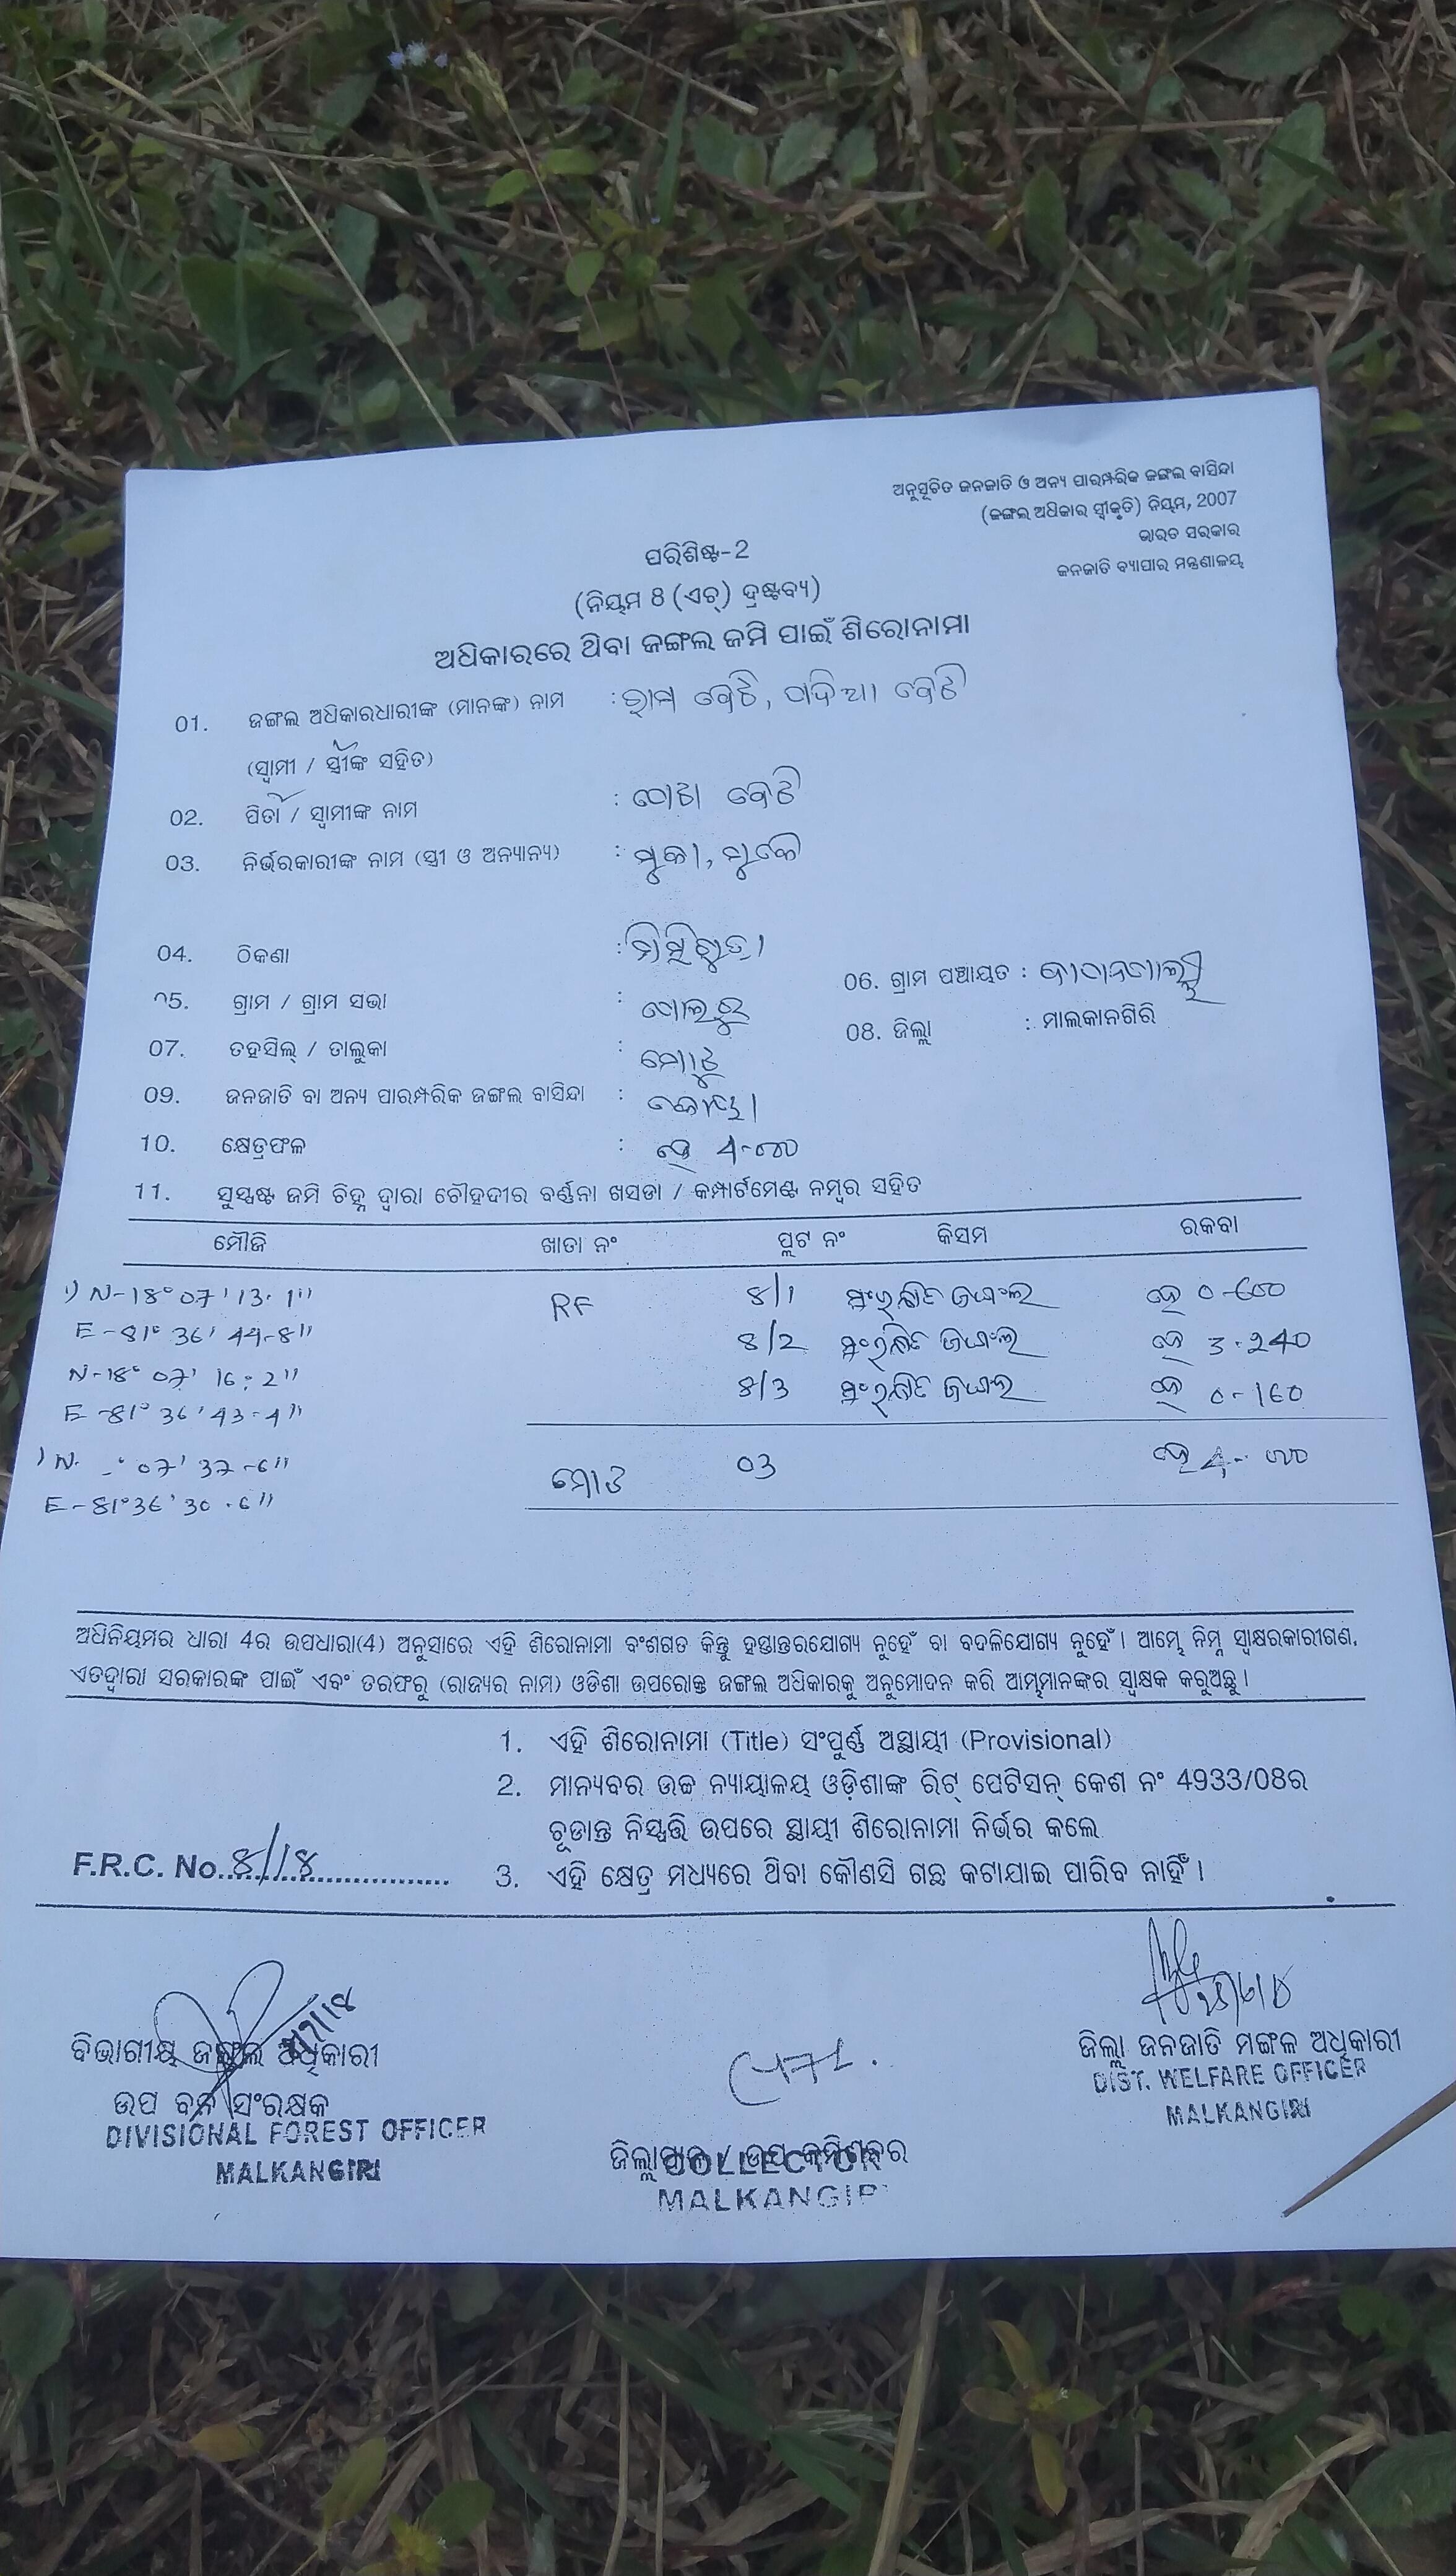 ଅନୁସୂଚିତ ଜନଜାତି ଓ ଅନ୍ୟ ପାରମ୍ପରିକ ଜଙ୍ଗଲ ବାସିନ୍ଦା
(ଜଙ୍ଗଲ ଅଧିକାର ସ୍ଵୀକୃତି) ନିୟମ, 2007
ଭାରତ ସରକାର
ଜନଜାତି ବ୍ୟାପାର ମନ୍ତ୍ରଣାଳୟ
ପରିଶିଷ୍ଟ-2
(ନିୟମ 8 (ଏଚ୍) ଦ୍ରଷ୍ଟବ୍ୟ)
ଅଧିକାରରେ ଥିବା ଜଙ୍ଗଲ ଜମି ପାଇଁ ଶିରୋନାମା
01. ଜଙ୍ଗଲ ଅଧିକାରଧାରୀଙ୍କ (ମାନଙ୍କ) ନାମ :
(ସ୍ୱାମୀ / ସ୍ତ୍ରୀଙ୍କ ସହିତ)
02. ପିତା / ସ୍ୱାମୀଙ୍କ ନାମ :
03. ନିର୍ଭରକାରୀଙ୍କ ନାମ (ସ୍ତ୍ରୀ ଓ ଅନ୍ୟାନ୍ୟ) :
04. ଠିକଣା :
05. ଗ୍ରାମ / ଗ୍ରାମ ସଭା : 06. ଗ୍ରାମ ପଞ୍ଚାୟତ :
07. ତହସିଲ୍ / ତାଲୁକା : ମୋଟୁ 08. ଜିଲ୍ଲା : ମାଲକାନଗିରି
09. ଜନଜାତି ବା ଅନ୍ୟ ପାରମ୍ପରିକ ଜଙ୍ଗଲ ବାସିନ୍ଦା : କୋୟା
10. କ୍ଷେତ୍ରଫଳ : ହେ 4-000
11. ସୁସ୍ପଷ୍ଟ ଜମି ଚିହ୍ନ ଦ୍ୱାରା ଚୌହଦୀର ବର୍ଣ୍ଣନା ଖସଡା / କମ୍ପାର୍ଟମେଣ୍ଟ ନମ୍ବର ସହିତ
ମୌଜି ଖାତା ନଂ ପ୍ଲଟ ନଂ କିସମ ରକବା
1) N-18° 07' 13.1" RF 8/1 ସଂରକ୍ଷିତ ଜଙ୍ଗଲ ହେ 0-600
E-81° 36' 44-8" 8/2 ସଂରକ୍ଷିତ ଜଙ୍ଗଲ ହେ 3.240
N-18° 07' 16.2" 8/3 ସଂରକ୍ଷିତ ଜଙ୍ଗଲ ହେ 0-160
E-81° 36' 43-4"
N- 07' 37-6" ମୋଟ 03 ହେ 4-000
E-81° 36' 30.6"
ଅଧିନିୟମର ଧାରା 4ର ଉପଧାରା(4) ଅନୁସାରେ ଏହି ଶିରୋନାମା ବଂଶଗତ କିନ୍ତୁ ହସ୍ତାନ୍ତରଯୋଗ୍ୟ ନୁହେଁ ବା ବଦଳିଯୋଗ୍ୟ ନୁହେଁ। ଆମ୍ଭେ ନିମ୍ନ ସ୍ୱାକ୍ଷରକାରୀଗଣ,
ଏତଦ୍ୱାରା ସରକାରଙ୍କ ପାଇଁ ଏବଂ ତରଫରୁ (ରାଜ୍ୟର ନାମ) ଓଡିଶା ଉପରୋକ୍ତ ଜଙ୍ଗଲ ଅଧିକାରକୁ ଅନୁମୋଦନ କରି ଆମ୍ଭମାନଙ୍କର ସ୍ୱାକ୍ଷକ କରୁଅଛୁ।
1. ଏହି ଶିରୋନାମା (Title) ସଂପୂର୍ଣ୍ଣ ଅସ୍ଥାୟୀ (Provisional)
2. ମାନ୍ୟବର ଉଚ୍ଚ ନ୍ୟାୟାଳୟ ଓଡ଼ିଶାଙ୍କ ରିଟ୍ ପେଟିସନ୍ କେଶ ନଂ 4933/08ର
ଚୂଡାନ୍ତ ନିସ୍ପତ୍ତି ଉପରେ ସ୍ଥାୟୀ ଶିରୋନାମା ନିର୍ଭର କଲେ
F.R.C. No. 8/18
3. ଏହି କ୍ଷେତ୍ର ମଧ୍ୟରେ ଥିବା କୌଣସି ଗଛ କଟାଯାଇ ପାରିବ ନାହିଁ।
ବିଭାଗୀୟ ଜଙ୍ଗଲ ଅଧିକାରୀ
ଉପ ବନ ସଂରକ୍ଷକ
DIVISIONAL FOREST OFFICER
MALKANGIRI
ଜିଲ୍ଲାପାଳ / ଉପ କମିଶନର
COLLECTOR
MALKANGIRI
ଜିଲ୍ଲା ଜନଜାତି ମଙ୍ଗଳ ଅଧିକାରୀ
DIST. WELFARE OFFICER
MALKANGIRI